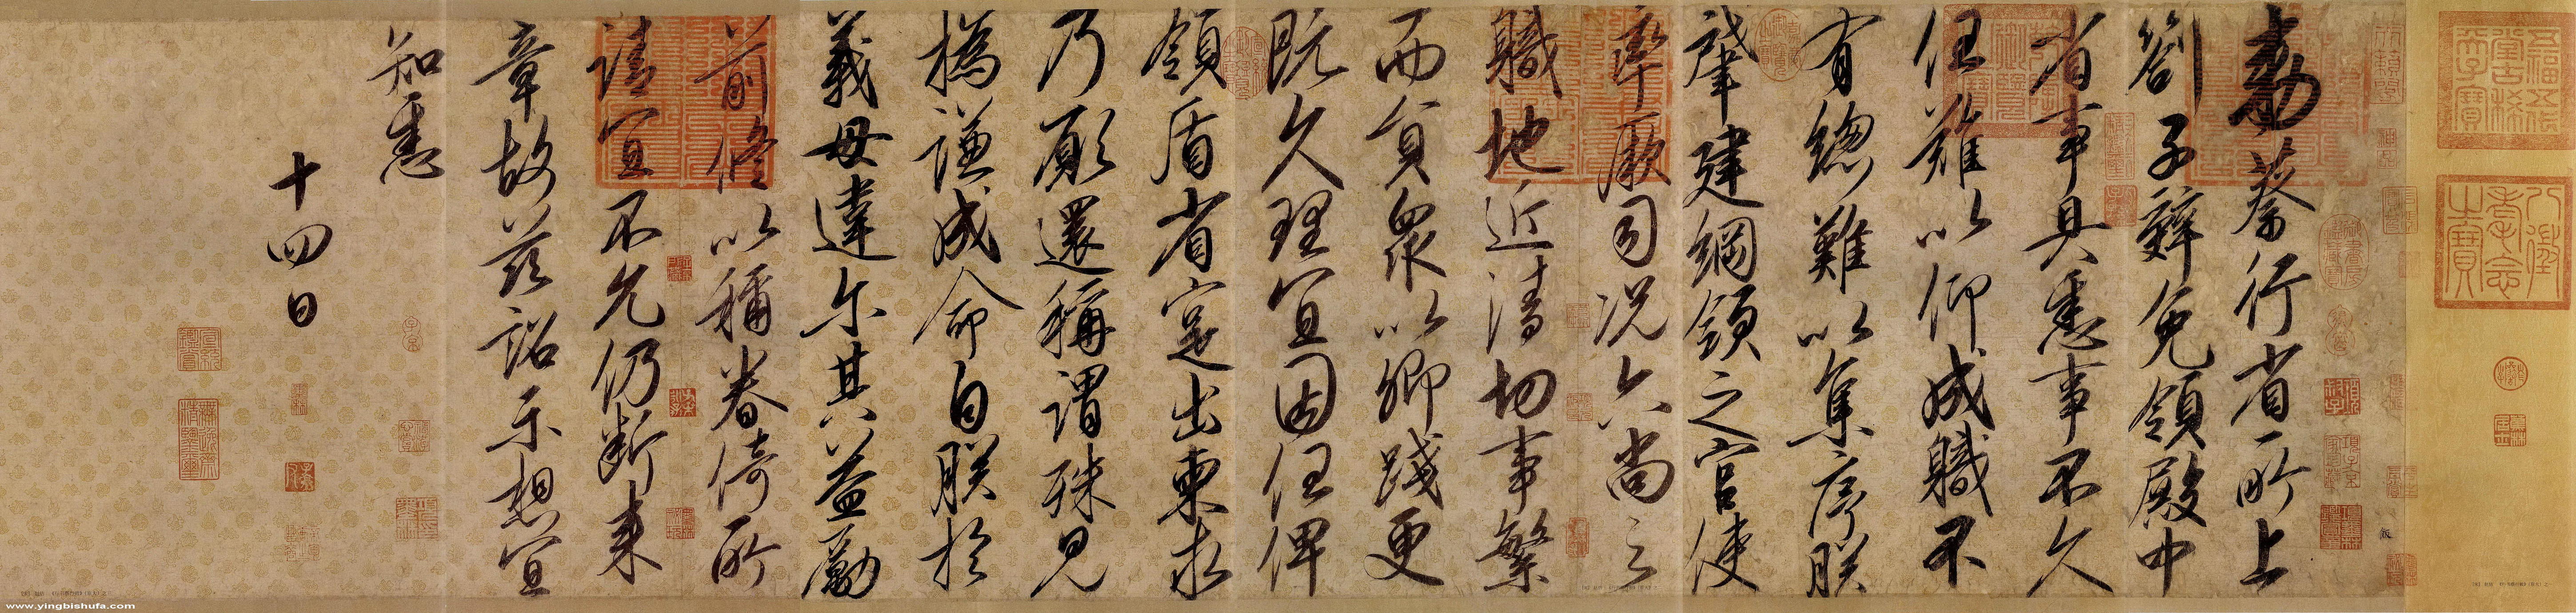 八徵耄念之寶
五福五代堂古稀天子寶
敕蔡行省所上
劄子辭免領殿中
省事具悉事不久
任難以仰成職不
有總難以集序朕
肇建綱領之官使
率厥司況六尚之
職地近清切事繁
而員眾以卿踐更
既久理宜因任俾
領盾省寔出柬求
乃願還稱謂殊見
撝謙成命自朕於
義毋違尔其益勵
前脩以稱眷倚所
請宜不允仍斷來
章故茲詔示想宜
知悉
十四日
www.yingbishufa.com